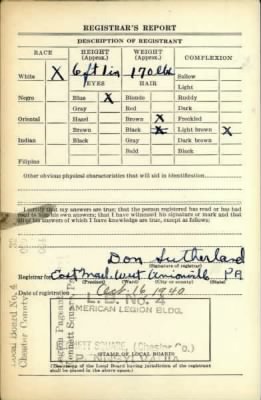 REGISTRAR'S REPORT
DESCRIPTION OF REGISTRANT
RACE
HEIGHT (Approx.)
WEIGHT (Approx.)
COMPLEXION
White X
6 ft 1 in
170 lbs
Sallow
EYES
HAIR
Light
Negro
Blue X
Blonde
Ruddy
Gray
Red
Dark
Oriental
Hazel
Brown X
Freckled
Brown
Black X
Light brown X
Indian
Black
Gray
Dark brown
Bald
Black
Filipino
Other obvious physical characteristics that will aid in identification
I certify that my answers are true; that the person registered has read or has had
read to him his own answers; that I have witnessed his signature or mark and that
all of his answers of which I have knowledge are true, except as follows:
Don Sutherland
Registrar for
West
PA
(Precinct) (Ward) (City or county) (State)
Date of registration Oct. 16, 1940
L.B. NO. 4
AMERICAN LEGION BLDG.
KENNETT SQUARE, (Chester Co.)
STAMP OF LOCAL BOARD
(The stamp of the Local Board having jurisdiction of the registrant
shall be placed in the above space.)
Local Board No. 4
Chester County